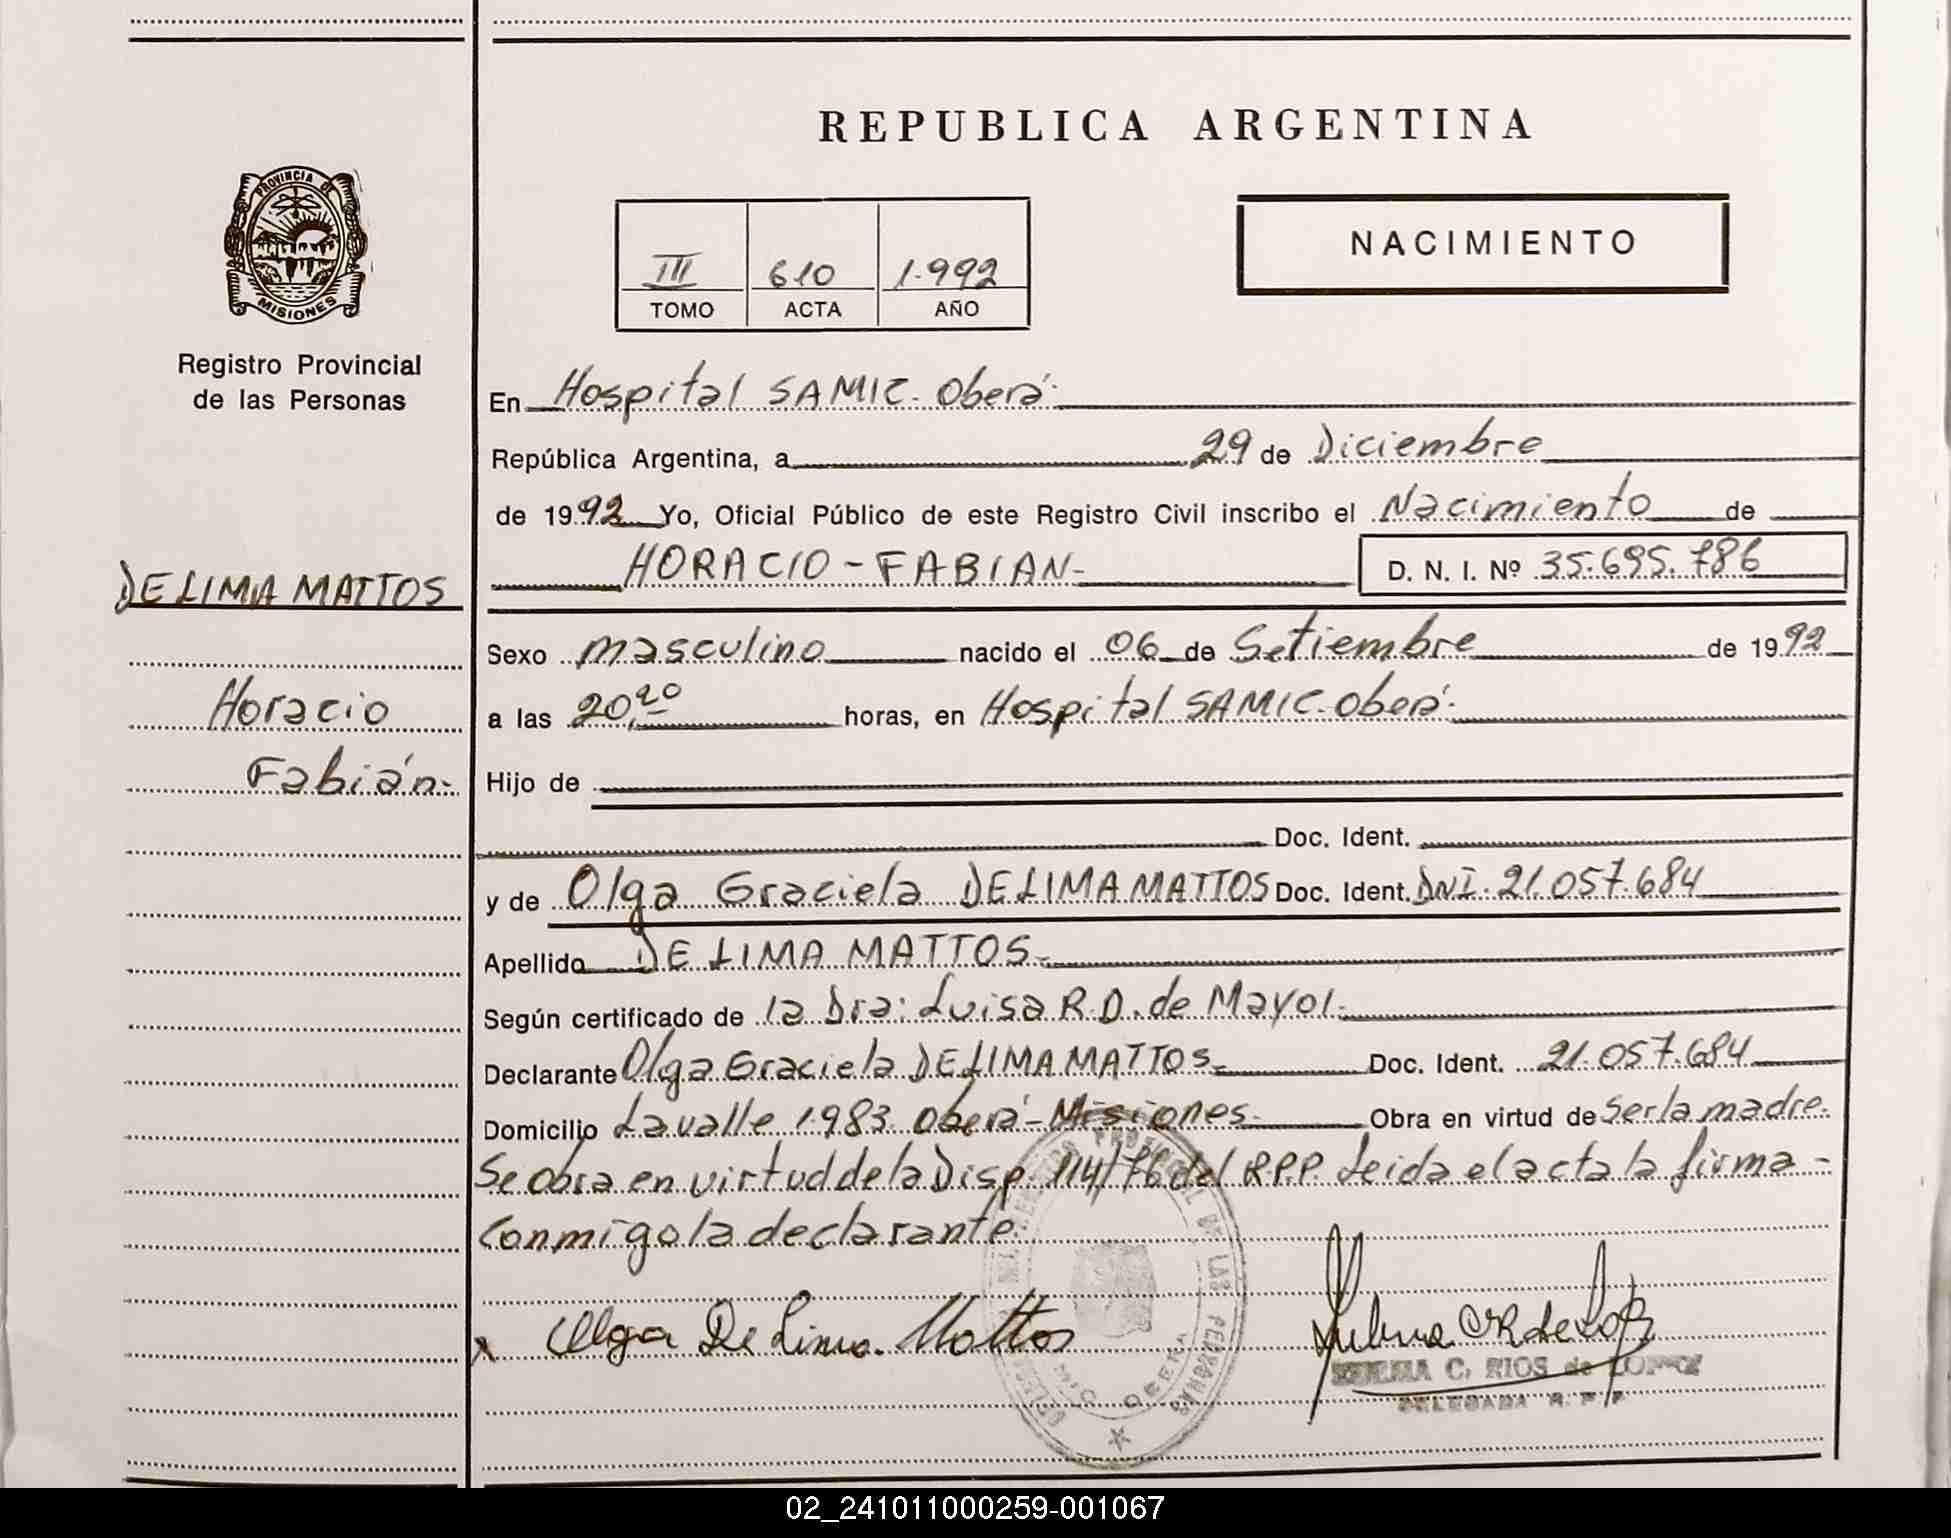 REPUBLICA ARGENTINA
PROVINCIA DE
MISIONES
Registro Provincial
de las Personas
III 610 1.992
TOMO ACTA AÑO
NACIMIENTO
En Hospital SAMIC. Oberá.
República Argentina, a 29 de Diciembre
de 1992 Yo, Oficial Público de este Registro Civil inscribo el Nacimiento de
HORACIO - FABIAN -
D. N. I. Nº 35.695.786
DE LIMA MATTOS
Horacio
Fabián.-
Sexo masculino nacido el 06 de Setiembre de 1992
a las 20,20 horas, en Hospital SAMIC. Oberá.
Hijo de
Doc. Ident.
y de Olga Graciela DE LIMA MATTOS Doc. Ident. DNI. 21.057.684
Apellido DE LIMA MATTOS.-
Según certificado de la Dra: Luisa R.D. de Mayol.
Declarante Olga Graciela DE LIMA MATTOS.- Doc. Ident. 21.057.684
Domicilio Lavalle 1.983 Oberá - Misiones. Obra en virtud de ser la madre.
Se obra en virtud de la Disp. 114/76 del R.P.P. Leida el acta la firma -
conmigo la declarante.
x Olga De Lima. Mattos
C. RIOS de LOPEZ
DELEGADA R. P. P.
02_241011000259-001067